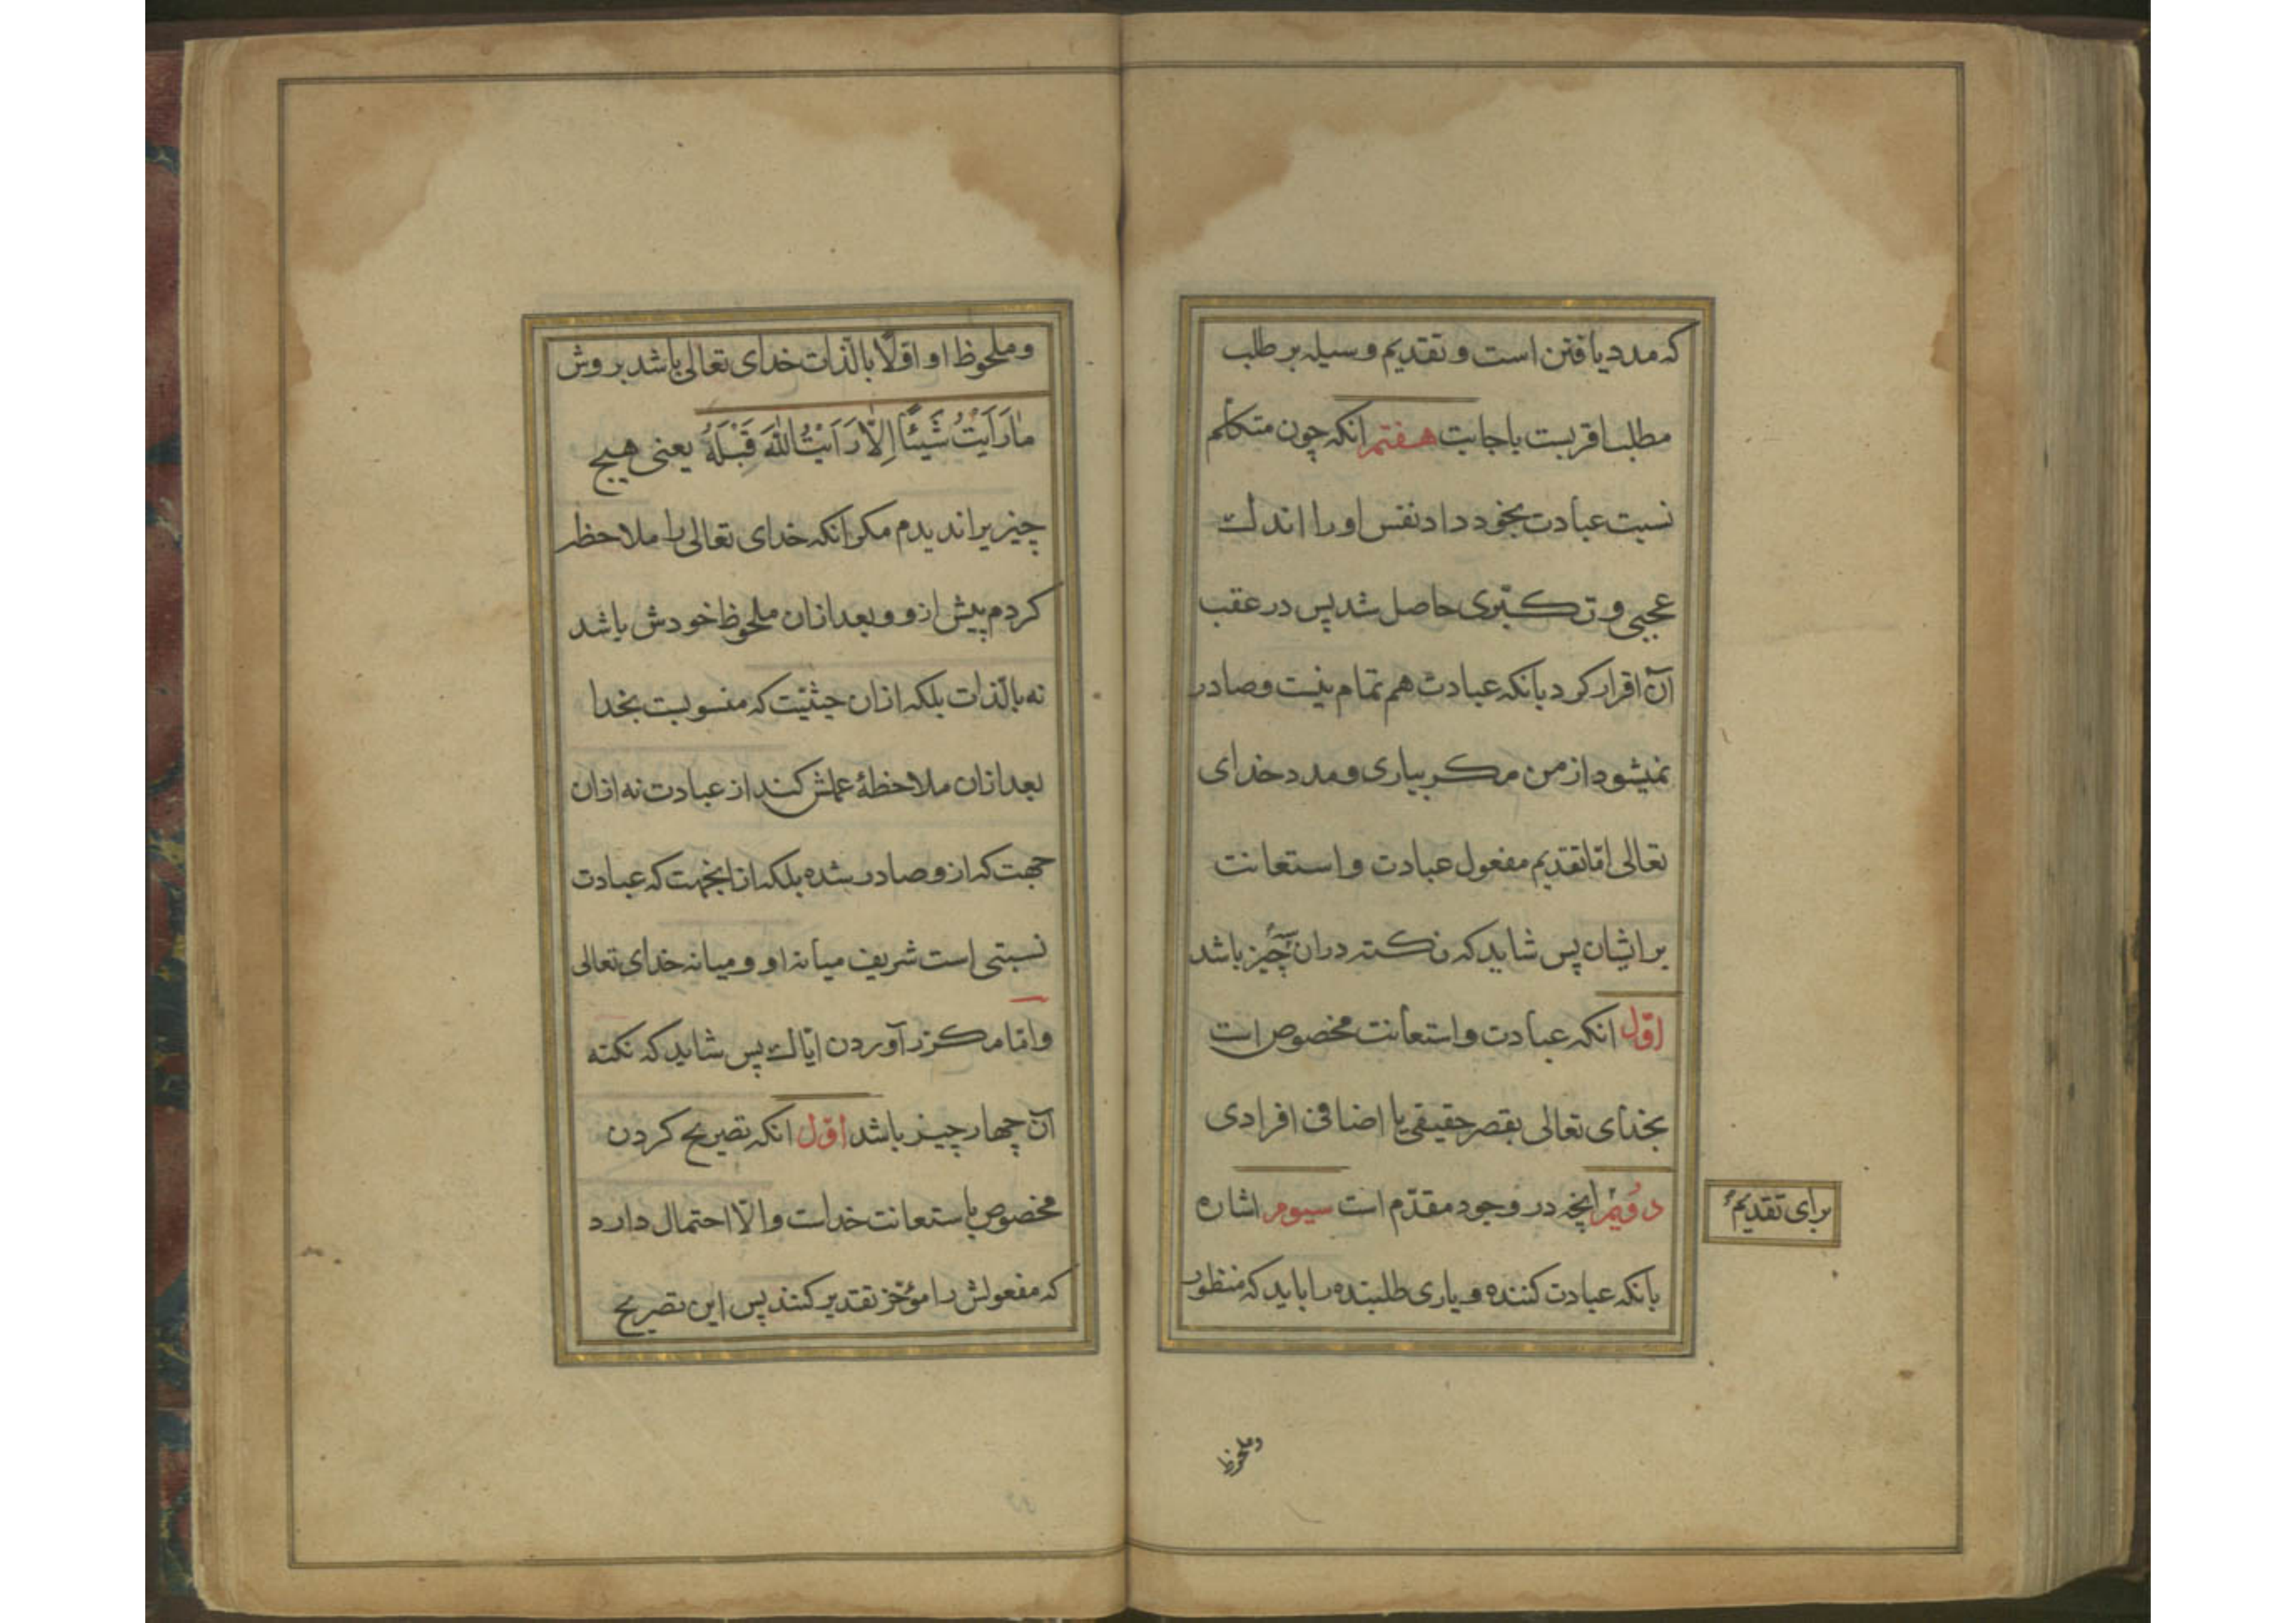 که مدد یافتن است و تقدیم وسیله بر طلب
مطلب اقربست باجابت هفتم انکه چون متکلم
نسبت عبادت بخود داد نفس او را اندك
عجبی و تکبّری حاصل شد پس در عقب
آن اقرار کرد بانکه عبادت هم تمام نیست و صادر
نمیشود از من مکر بیاری و مدد خدای
تعالی امّا تقدیم مفعول عبادت و استعانت
بر ایشان پس شاید که نکته دران سه چیز باشد
اوّل انکه عبادت و استعانت مخصوص است
بخدای تعالی بقصر حقیقی یا اضافی افرادی
دویّم انچه در وجود مقدّم است سیوم اشاره
برای تقدیم
بانکه عبادت کننده و یاری طلبنده را باید که منظور
وملحوظ
و ملحوظ او اوّلًا بالّذات خدای تعالی باشد بر وش
مٰارَاَیْتُ شَیْئًا اِلّٰا رَاَیْتُ اللّٰهَ قَبْلَهُ یعنی هیچ
چیزیرا ندیدم مکر انکه خدای تعالی را ملاحظه
کردم پیش ازو و بعد ازان ملحوظ خودش باشد
نه بالّذات بلکه ازان حیثیّت که منسوبست بخدا
بعد ازان ملاحظهٔ عملش کند از عبادت نه ازان
جهت که ازو صادر شده بلکه ازانجهت که عبادت
نسبتی است شریف میانه او و میانه خدای تعالی
و امّا مکرّر آوردن ایّاك پس شاید که نکته
آن چهار چیز باشد اوّل انکه تصریح کردن
مخصوص باستعانت خداست و الّا احتمال دارد
که مفعولش را مؤخّر تقدیر کنند پس این تصریح